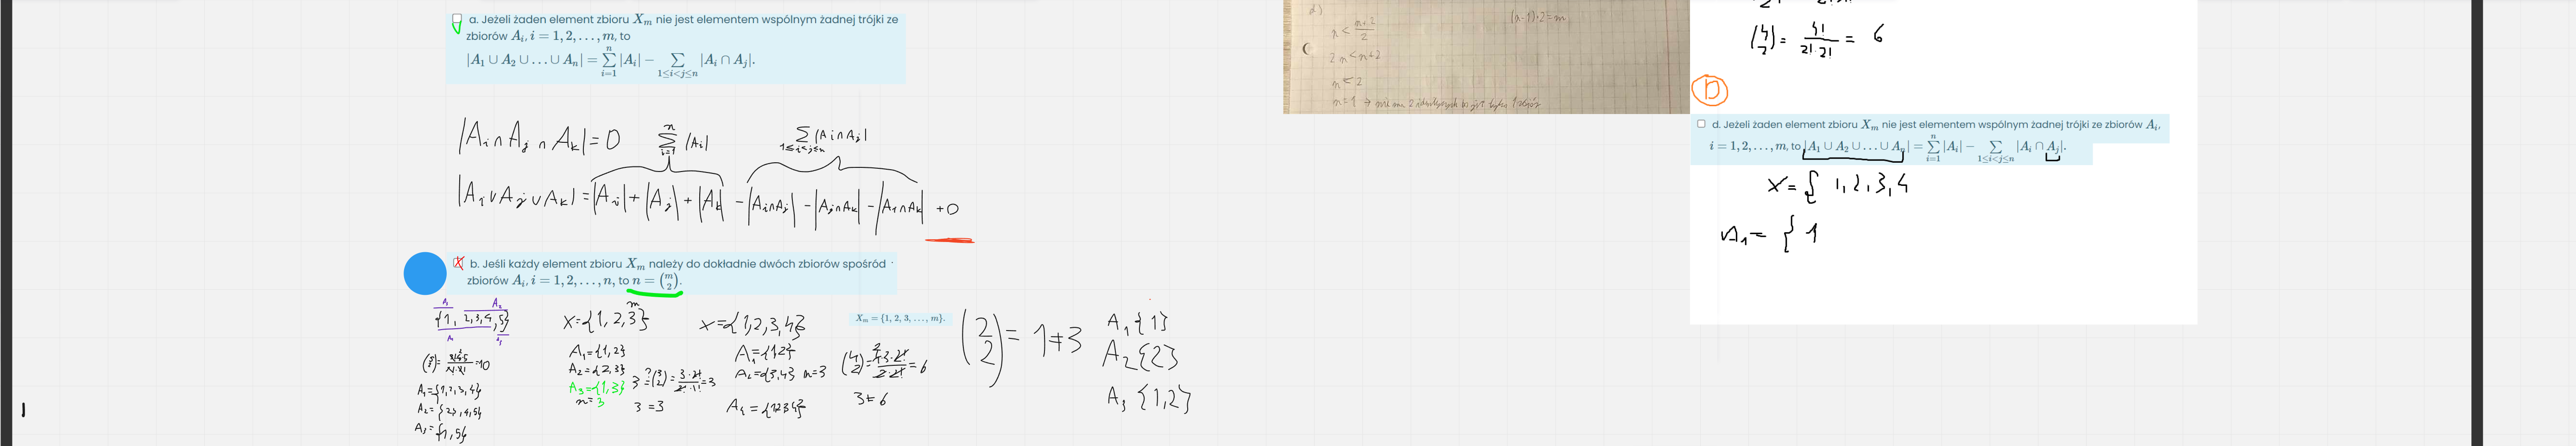 a. Jeżeli żaden element zbioru Xₘ nie jest elementem wspólnym żadnej trójki ze
zbiorów Aᵢ, i = 1, 2, …, m, to
|A₁ ∪ A₂ ∪ … ∪ Aₙ| = ∑ᵢ₌₁ⁿ |Aᵢ| − ∑₁≤ᵢ<ⱼ≤ₙ |Aᵢ ∩ Aⱼ|.
|Ai ∩ Aj ∩ Ak| = 0
∑ᵢ₌₁ⁿ |Ai|
∑₁≤ᵢ<ⱼ≤ₙ |Ai ∩ Aj|
|Ai ∪ Aj ∪ Ak| = |Ai| + |Aj| + |Ak| - |Ai∩Aj| - |Aj∩Ak| - |A1∩Ak| + 0
b. Jeśli każdy element zbioru Xₘ należy do dokładnie dwóch zbiorów spośród
zbiorów Aᵢ, i = 1, 2, …, n, to n = (m 2).
A₁ A₂
{1, 2,3,4,5}
=10
A₁={1,2,3,4}
A₂={2,3,4,5}
A₃={1,5}
m
X={1,2,3}
A₁={1,2}
A₂={2,3}
A₃={1,3}
n=3
3 ?= (3 2) = 3·2!/2!·1! = 3
3=3
X={1,2,3,4}
A₁={1,2}
A₂={3,4} n=3
A₃={1234}
Xₘ = {1, 2, 3, …, m}.
(4 2) = 4·3·2!/2·2! = 6
3≠6
(2 2) = 1≠3
A₁{1}
A₂{2}
A₃{1,2}
d)
n < m+2/2
(n-1)·2=m
2n<n+2
n<2
n=1 →
(4 2) = 4!/2!·2! = 6
D
d. Jeżeli żaden element zbioru Xₘ nie jest elementem wspólnym żadnej trójki ze zbiorów Aᵢ,
i = 1, 2, …, m, to |A₁ ∪ A₂ ∪ … ∪ Aₙ| = ∑ᵢ₌₁ⁿ |Aᵢ| − ∑₁≤ᵢ<ⱼ≤ₙ |Aᵢ ∩ Aⱼ|.
X={ 1,2,3,4
A₁={ 1